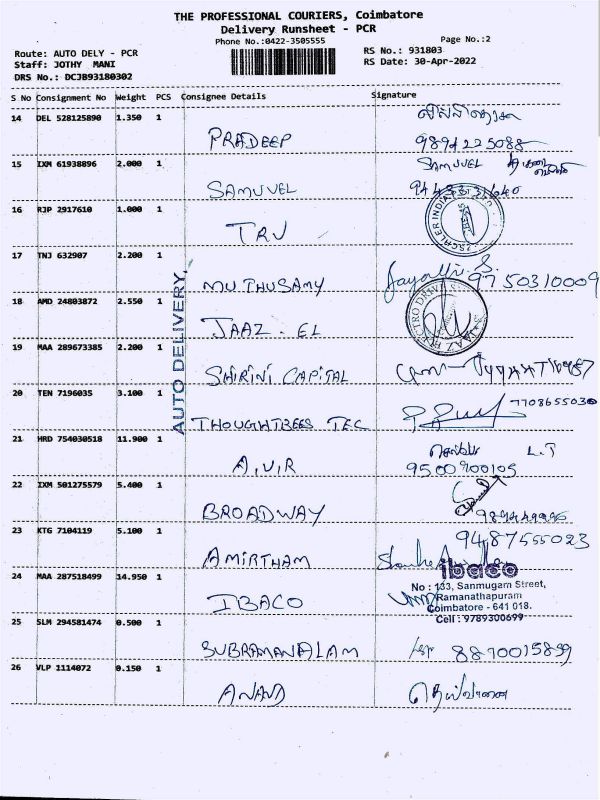 THE PROFESSIONAL COURIERS, Coimbatore
Delivery Runsheet - PCR
Phone No.:0422-3505555
Page No.:2
Route: AUTO DELY - PCR
RS No.: 931803
Staff: JOTHY MANI
RS Date: 30-Apr-2022
DRS No.: DCJB93180302
S No Consignment No Weight PCS Consignee Details Signature
14 DEL 528125890 1.350 1
PRADEEP 9894225088
15 IXM 61938896 2.000 1 SAMUVEL
SAMUVEL
16 RJP 2917610 1.000 1
TRU
17 TNJ 632907 2.200 1
MUTHUSAMY 9750310009
18 AMD 24803872 2.550 1
JAAZ - EL
19 MAA 289673385 2.200 1
SHIRINI CAPITAL
20 TEN 7196035 3.100 1 7708655030
THOUGHTBEES TEC
21 HRD 754030518 11.900 1 L.T
A.V.R 9500900105
22 IXM 501275579 5.400 1
BROADWAY
23 KTG 7104119 5.100 1 9487555023
AMIRTHAM
24 MAA 287518499 14.950 1 ibaco
No : 133, Sanmugam Street,
IBACO Ramanathapuram
Coimbatore - 641 018.
25 SLM 294581474 0.500 1 Cell : 9789300699
SUBRAMANALAM 8870015899
26 VLP 1114072 0.150 1
ANAND தெய்வானை
AUTO DELIVERY,